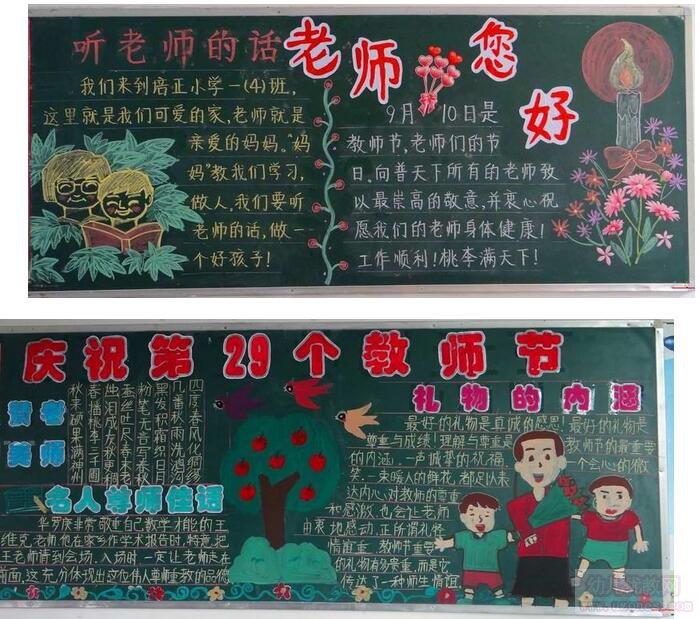 听老师的话
我们来到培正小学一(4)班,
这里就是我们可爱的家,老师就是
亲爱的妈妈。“妈
妈”教我们学习,
做人,我们要听
老师的话,做一
个好孩子!
老师您好
9月10日是
教师节,老师们的节
日,向普天下所有的老师致
以最崇高的敬意,并衷心祝
愿我们的老师身体健康!
工作顺利!桃李满天下!
庆祝第29个教师节
四度春风化绸缪
几番秋雨洗鸿沟
黑发积霜织日月
粉笔无言写春秋
蚕丝吐尽春未老
烛泪成灰秋更稠
春播桃李三千圃
秋来硕果满神州
名人尊师佳话
华罗庚非常敬重自己教学才能的王
维克老师,他在家乡作学术报告时,特意把
王老师请到会场,入场时一定让老师走在
前面,这充分体现出这位伟人尊师重教的品德
礼物的内涵
最好的礼物是真诚的感恩!最好的礼物是
尊重与成绩!理解与尊重是教师节的最重要
的内涵,一声诚挚的祝福,一个会心的微
笑,一束暖人的鲜花,都足以表
达内心对教师的尊重
和感激,也会让老师
由衷地感动,正所谓礼
情谊重,教师节重要
的礼物有多贵重,而是它
传达了一种师生情谊,